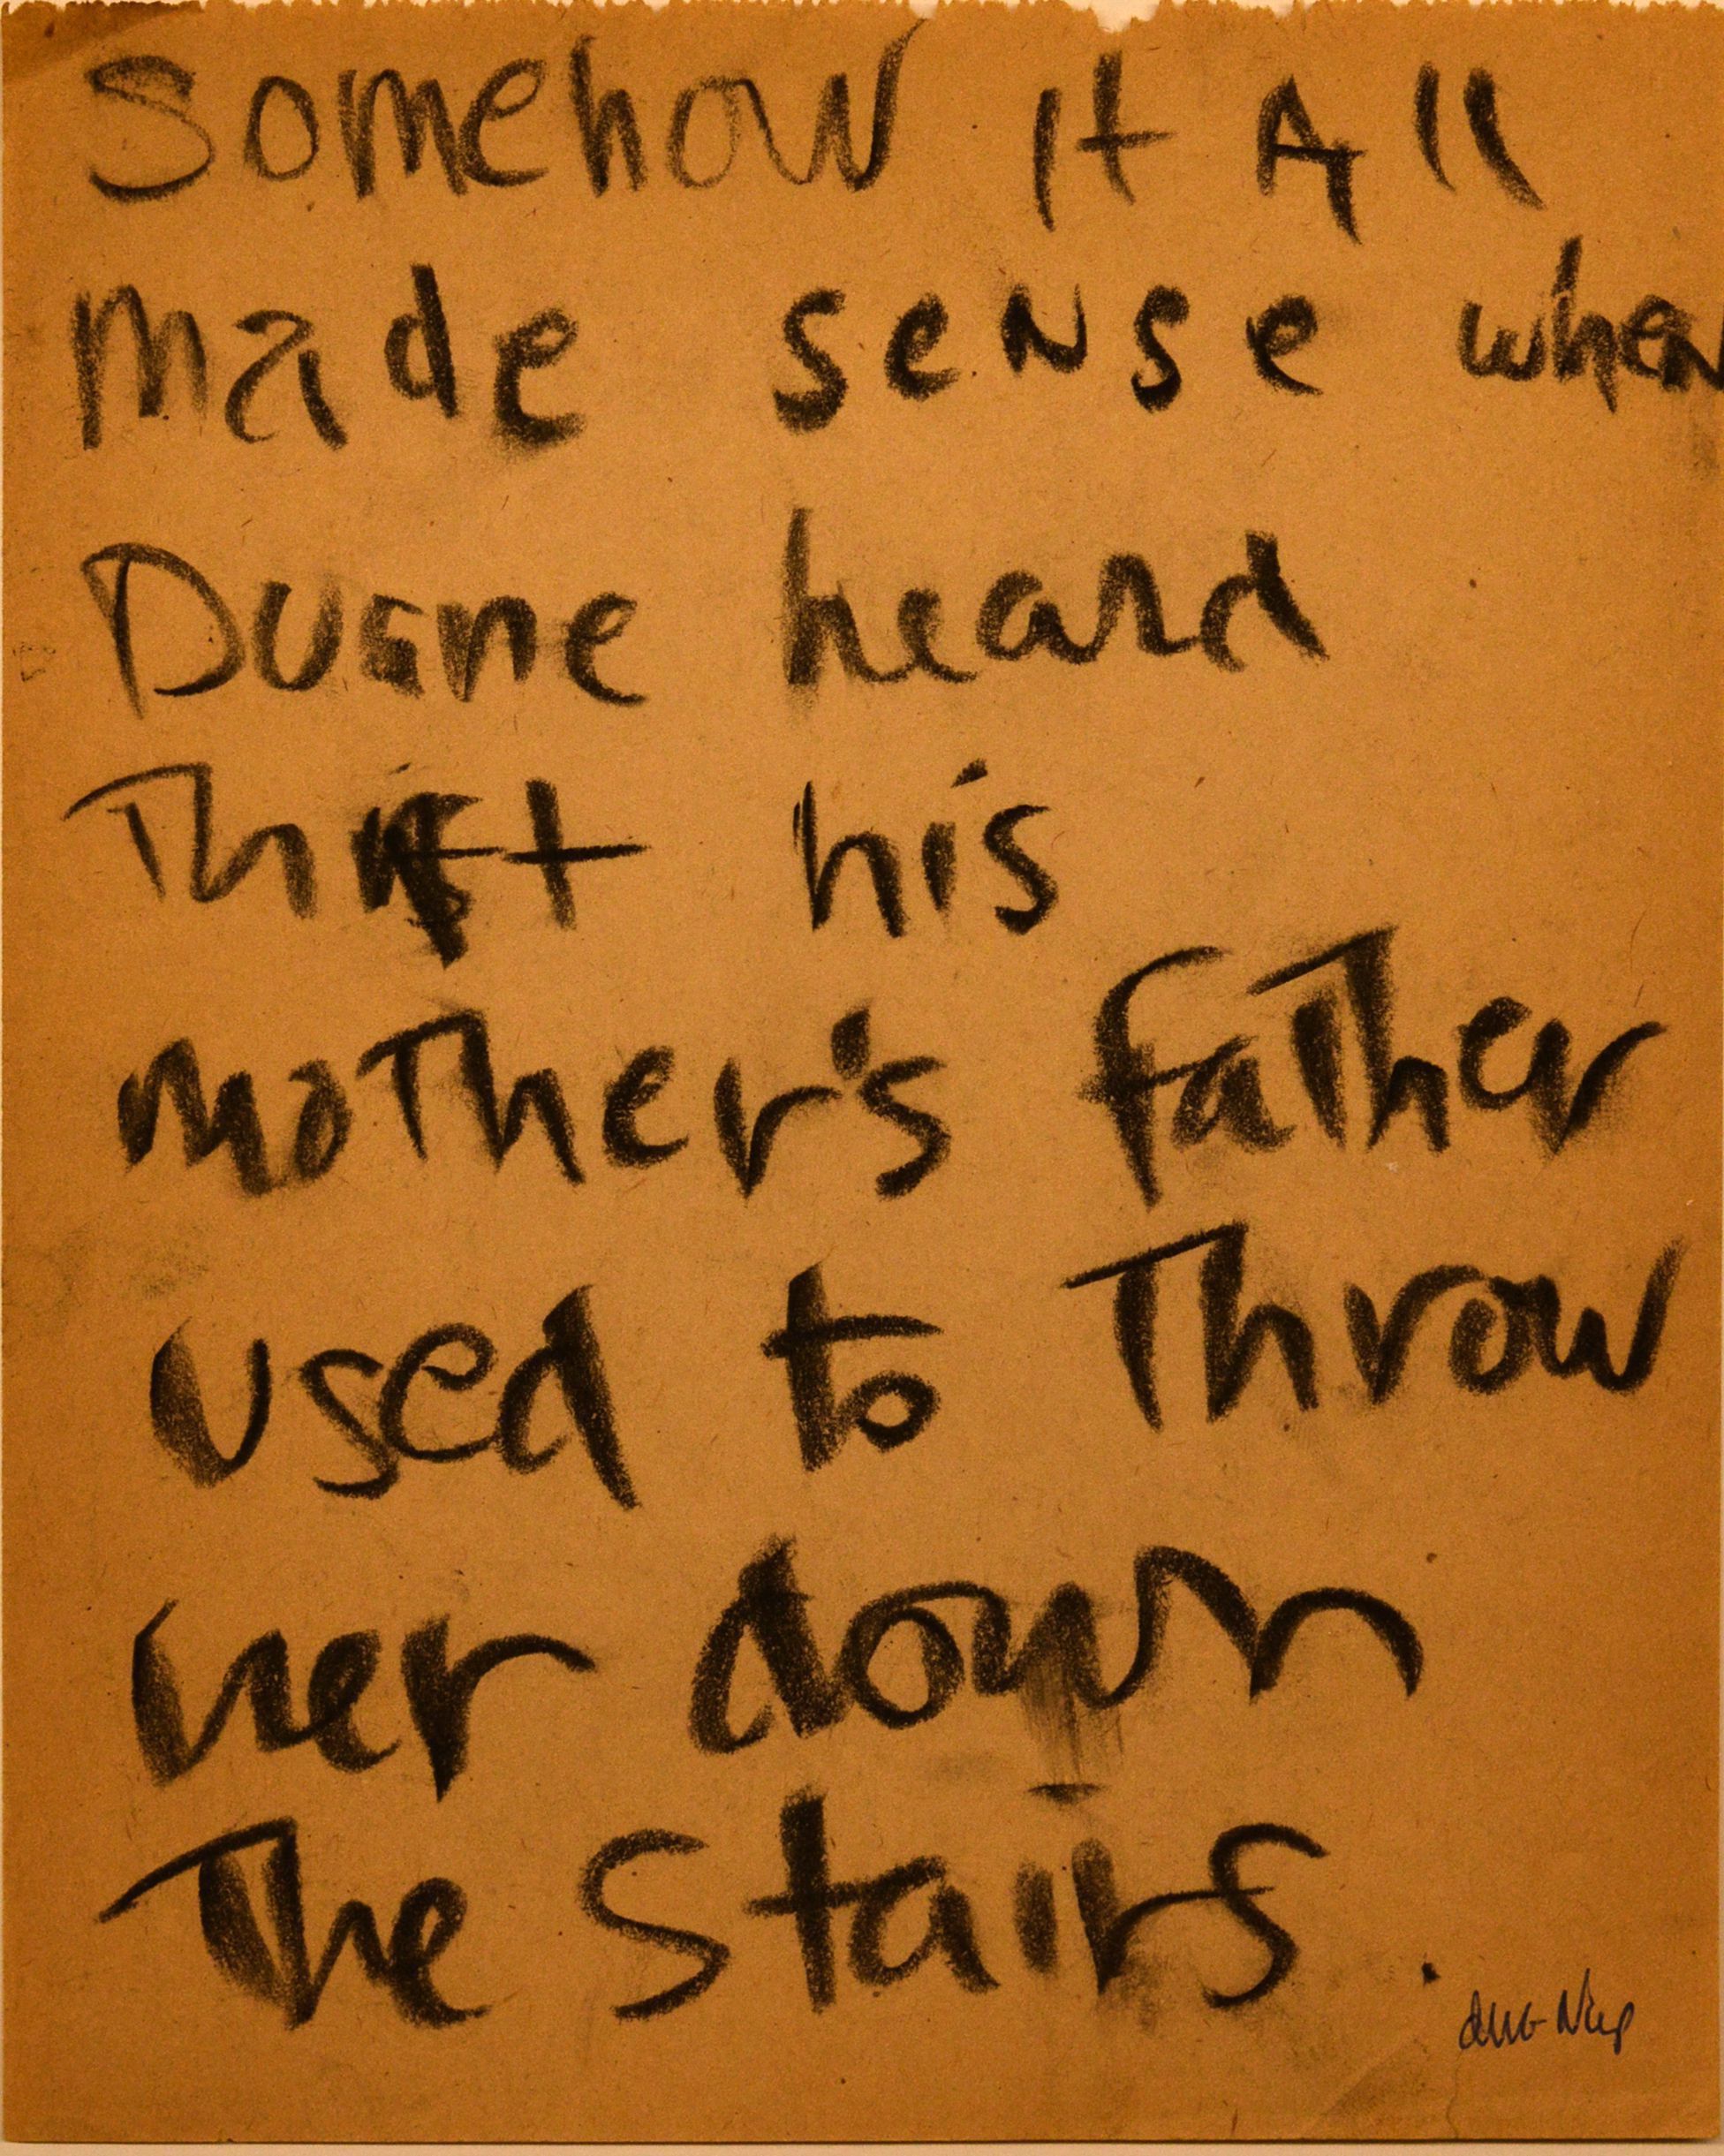 Somehow it All
made sense when
Duane heard
That his
mother's father
used to Throw
her down
The stairs.